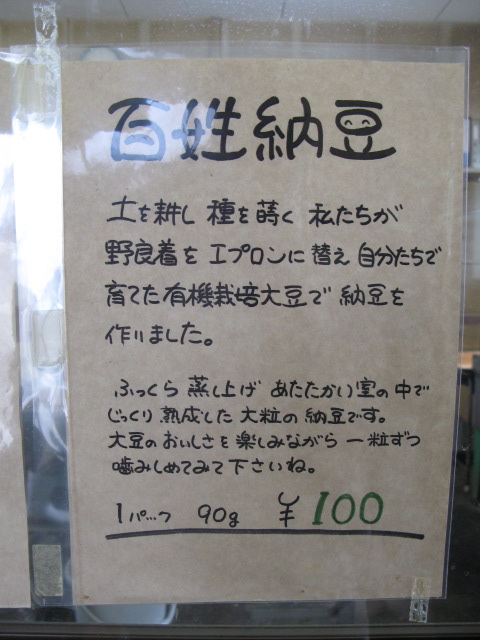 百姓納豆
土を耕し 種を蒔く 私たちが
野良着を エプロンに 替え 自分たちで
育てた有機栽培大豆で 納豆を
作りました。
ふっくら 蒸し上げ あたたかい室の中で
じっくり 熟成した 大粒の 納豆です。
大豆のおいしさを 楽しみながら 一粒ずつ
噛みしめてみて下さいね。
1パック 90g ¥100